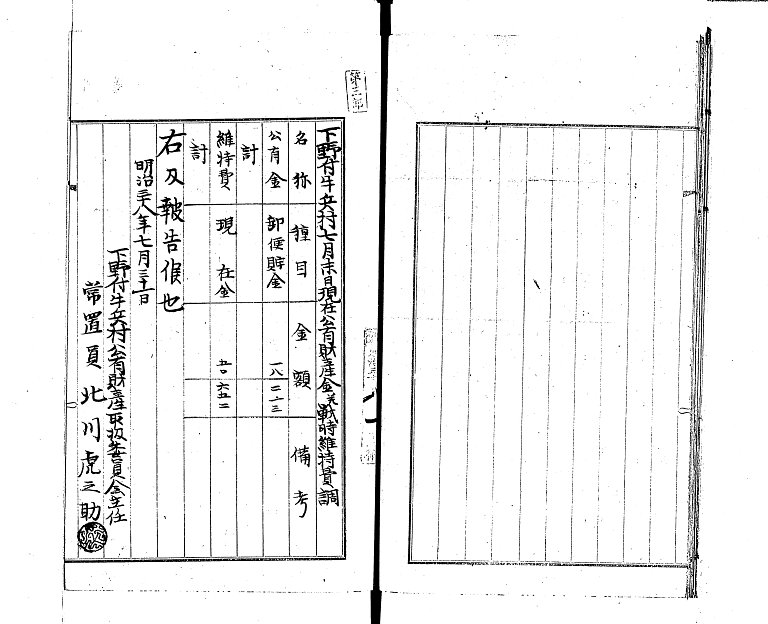 第三部
下野付牛兵村七月末日現在公有財産金並戦時維持費調
名称 種目 金額 備考
公有金 郵便貯金 一八二一三
計
維持費 現在金 五〇六五二
計
右及報告候也
明治三十八年七月三十一日
下野付牛兵村公有財産取扱委員会主任
常置員 北川虎之助